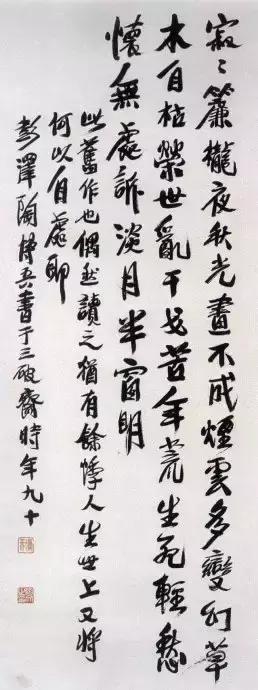 寂〻簾櫳夜秋光畫不成煙雲多變幻草
木自枯榮世亂干戈苦年荒生死輕愁
懷無處訴淡月半窗明
此舊作也偶然讀之猶有餘悸人生世上又將
何以自處耶
彭澤陶博吾書于三破齋時年九十